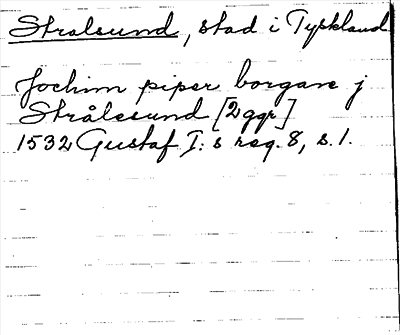 Stralsund, stad i Tyskland
Jochim piper borgare j
Strålesund [2 ggr]
1532 Gustaf I:s reg. 8, s. 1.